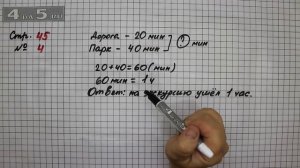 4 for 5
Стр. 45
№ 4
Дорога - 20 мин
Парк - 40 мин
? мин
20+40=60 (мин)
60 мин = 1 ч
Ответ: на экскурсию ушёл 1 час.